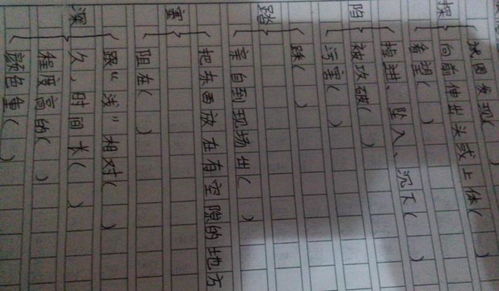 探
试图发现（ ）
向前伸出头或上体（ ）
看望（ ）
陷
掉进、坠入、沉下（ ）
被攻破（ ）
污害（ ）
踏
踩（ ）
亲自到现场去（ ）
塞
把东西放在有空隙的地方
阻在（ ）
深
跟“浅”相对（ ）
久，时间长（ ）
程度高的（ ）
颜色重（ ）